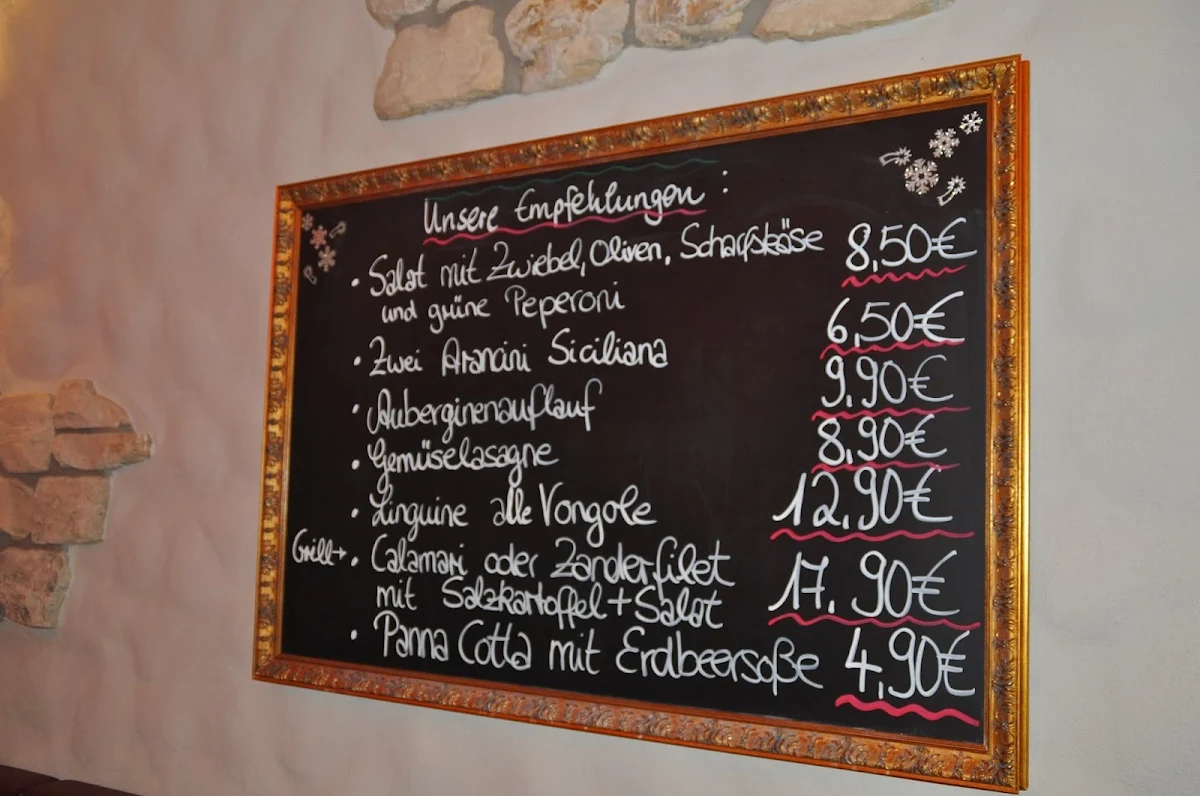 Unsere Empfehlungen:
• Salat mit Zwiebel, Oliven, Schafskäse 8,50€
und grüne Peperoni
• Zwei Arancini Siciliana 6,50€
• Auberginenauflauf 9,90€
• Gemüselasagne 8,90€
• Linguine alle Vongole 12,90€
Grill→ • Calamari oder Zanderfilet 17,90€
mit Salzkartoffel + Salat
• Panna Cotta mit Erdbeersoße 4,90€